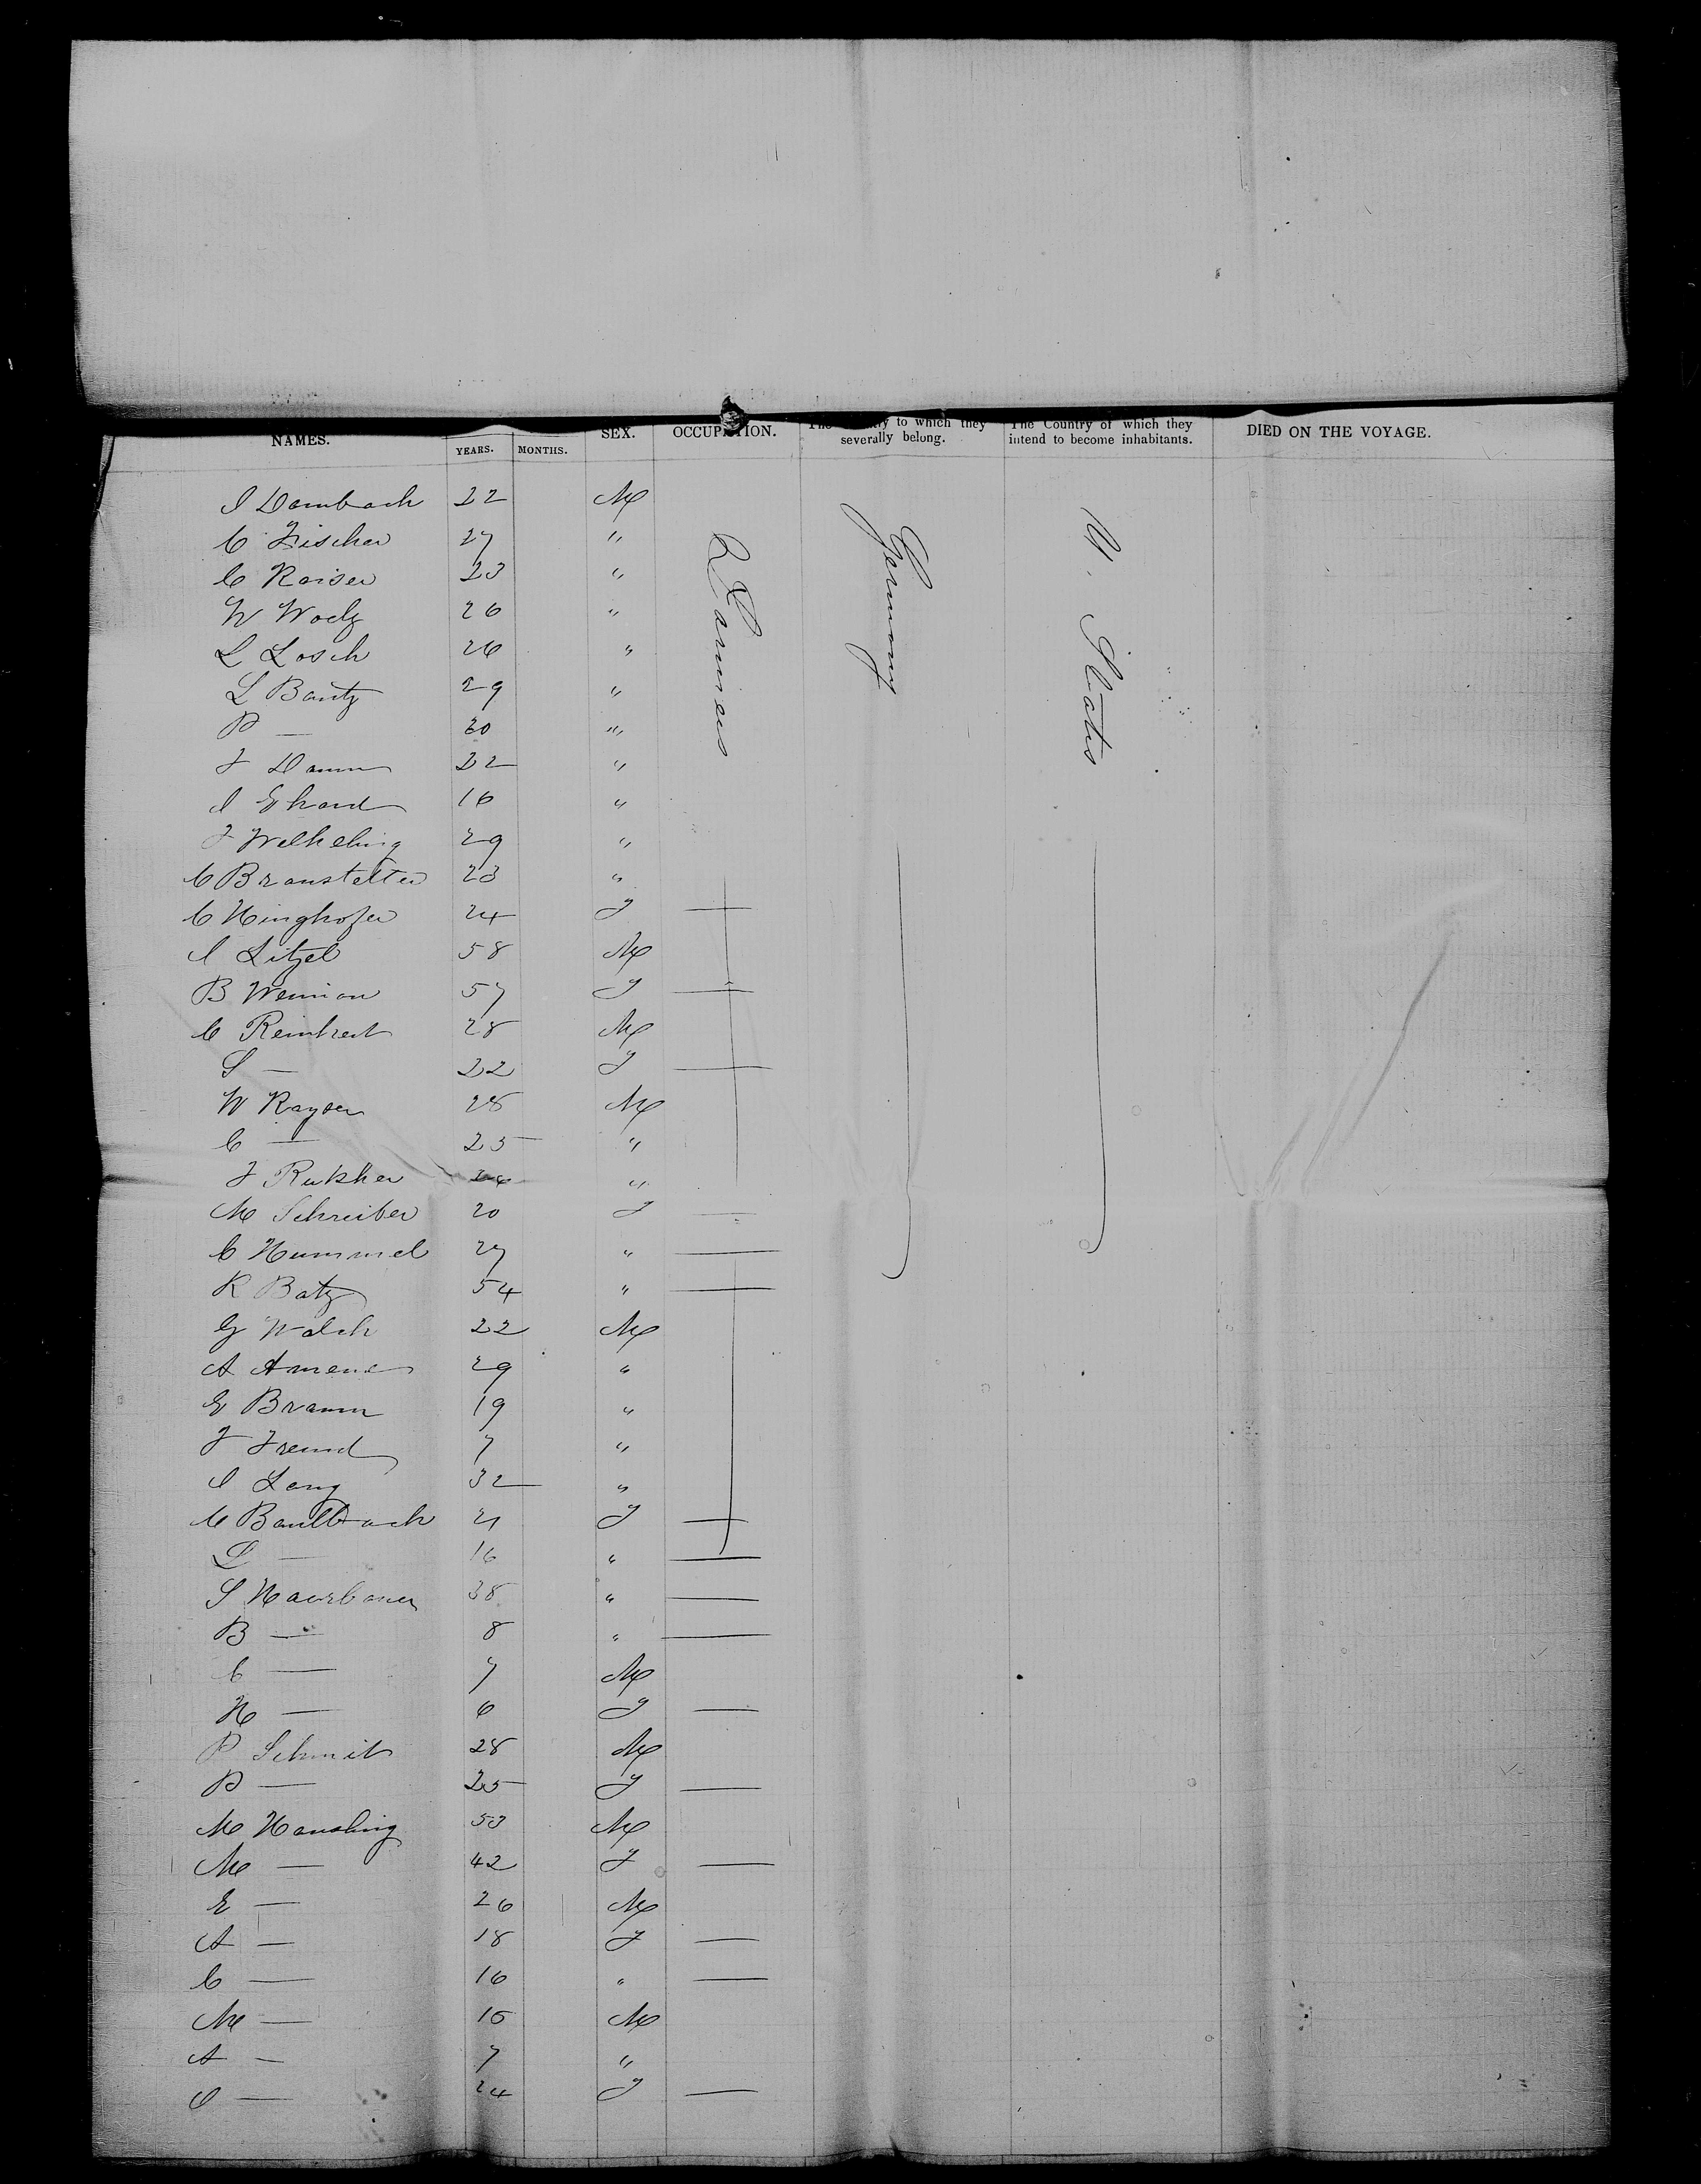 NAMES. YEARS. MONTHS. SEX. OCCUPATION. The Country to which they severally belong. The Country of which they intend to become inhabitants. DIED ON THE VOYAGE.
Germany
U. States
I Dambach 22 M
C Fischer 27 "
C Kaiser 23 "
W 26 "
L Losch 26 "
L Bantz 29 "
P — 30 "
F Damm 22 "
I Ehard 16 "
F 29 "
C Branstetter 23 "
C Hinghofer 24 F —
I Litzel 58 M
B 57 F —
C 28 M
S — 22 F —
W Kayser 28 M
C — 25 "
F 24 "
M Schreiber 20 F —
C Hummel 27 " —
K Batz 54 " —
G Walch 22 M
A 29 "
E Braun 19 "
F Freund 7 "
I Lang 32 "
C 21 F —
L — 16 " —
S 38 " —
B — 8 " —
C — 7 M
H — 6 F —
P Schmit 28 M
P — 25 F —
M 53 M
M — 42 F —
E — 26 M
A — 18 F —
C — 16 " —
M — M
A — 7 "
— 24 F —